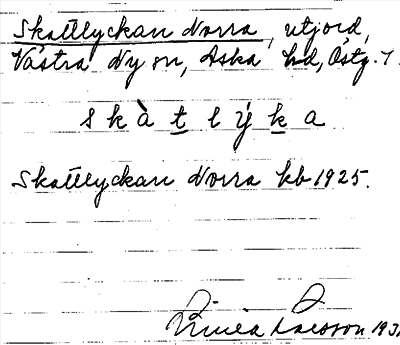 Skattlyckan Norra, utjord,
Västra Ny sn, Aska hd, Östg. 1
s k à t l ý k a
Skattlyckan Norra kb 1925.
Linnéa Larsson 193